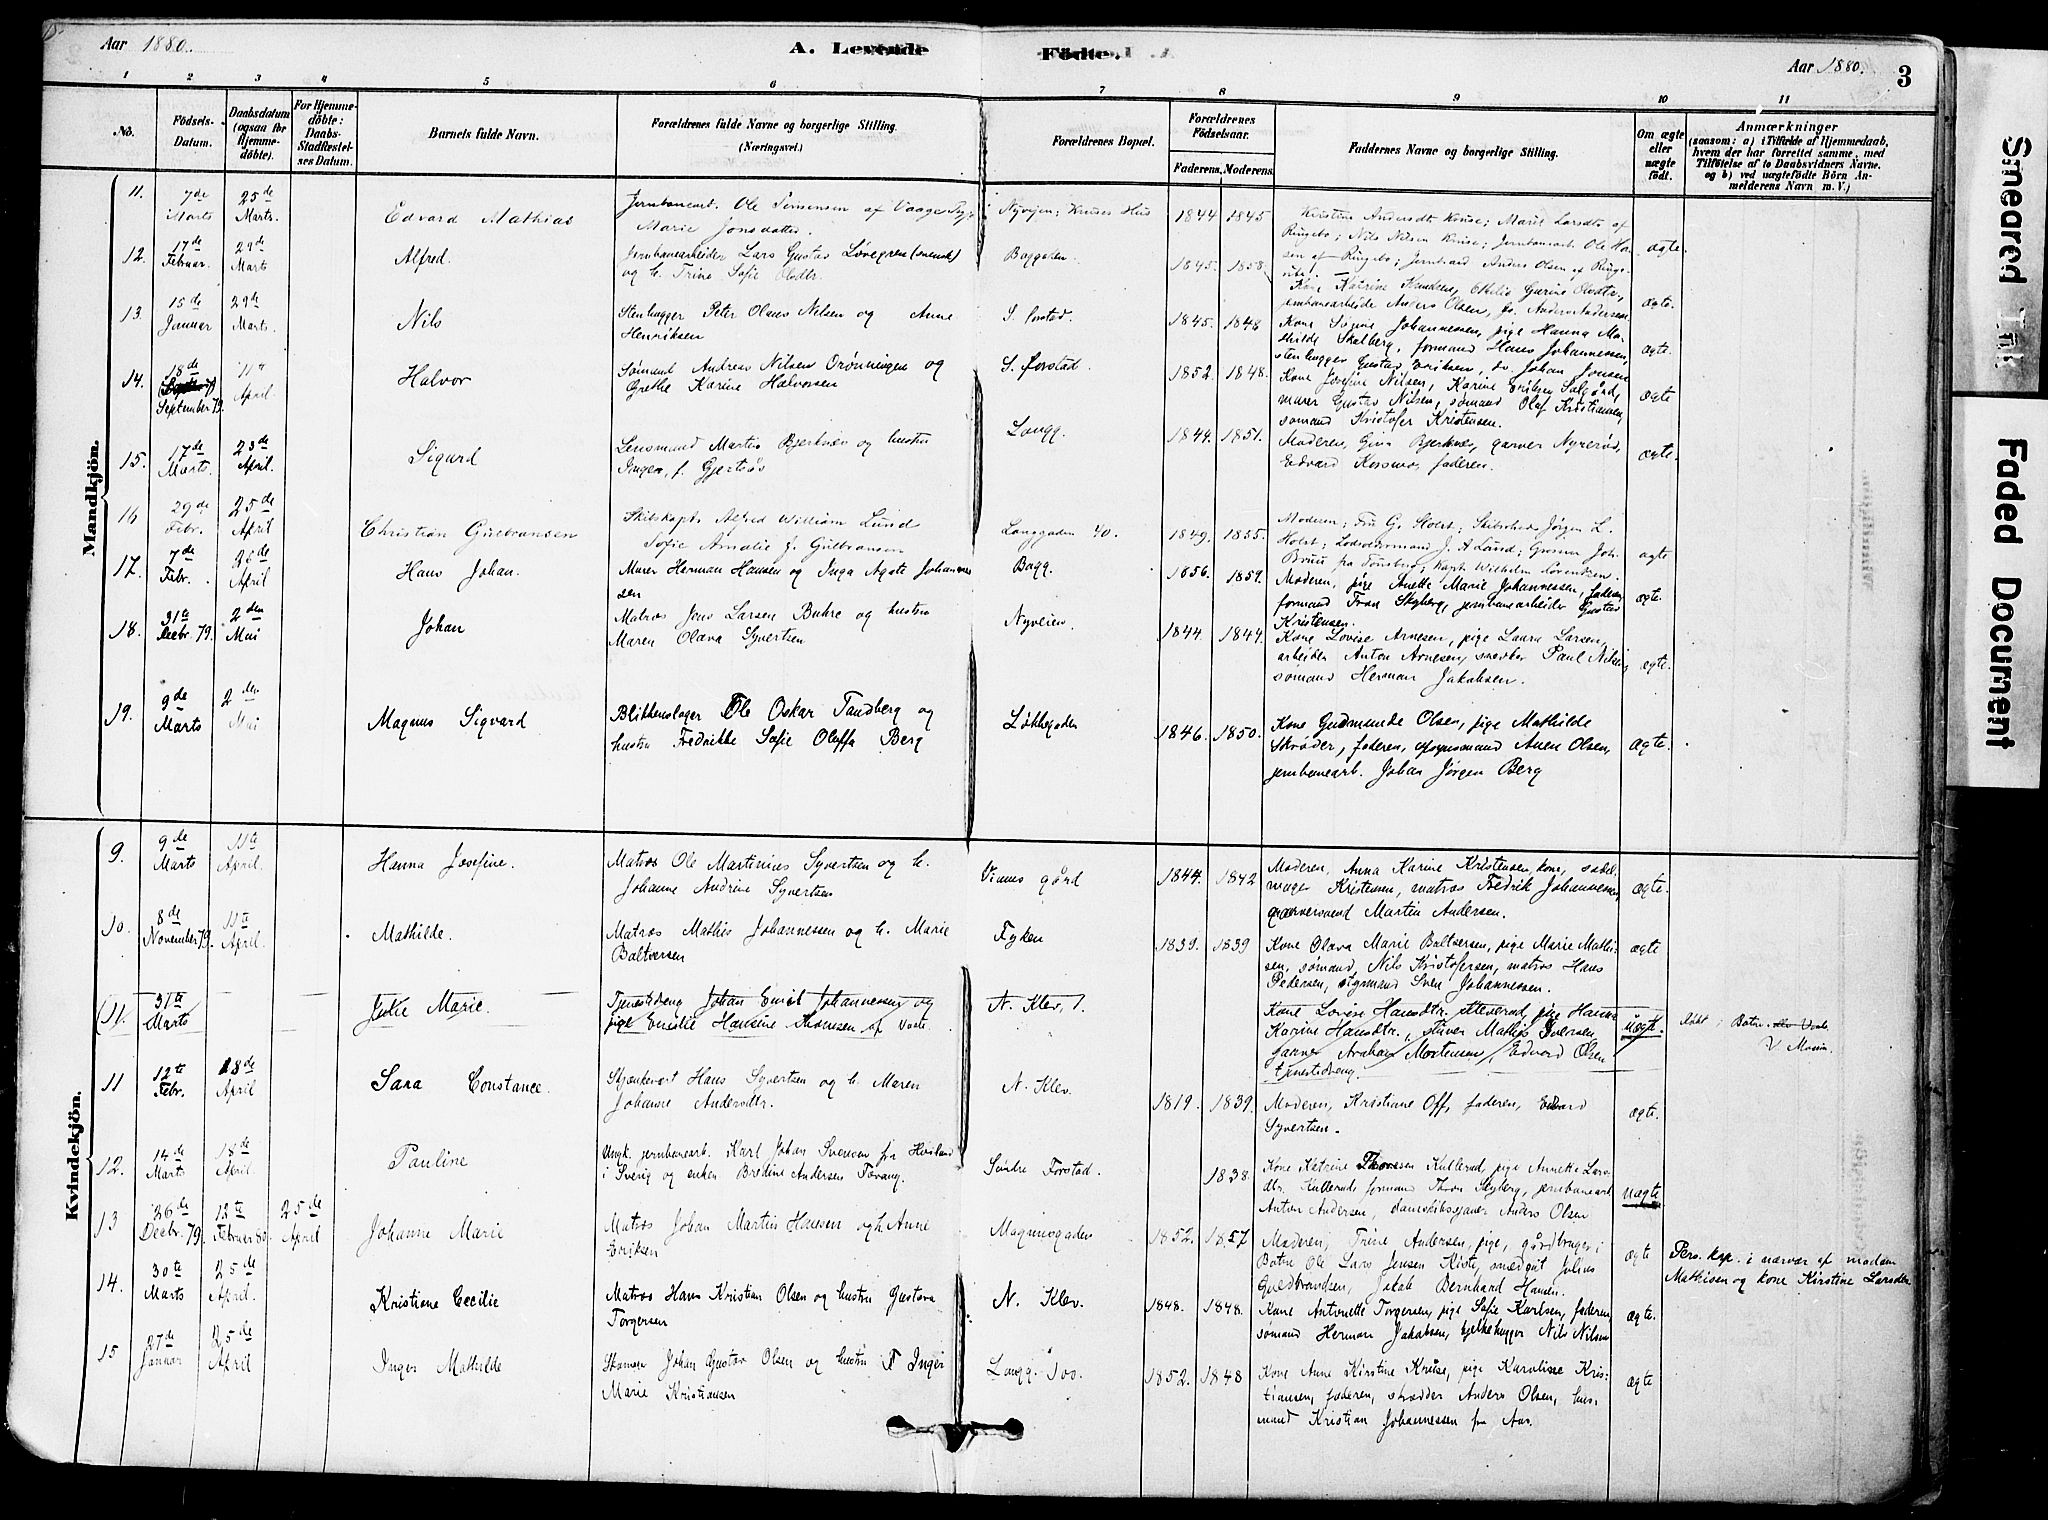 Aar 1880.
A. Levende Födte.
Aar 1880.
3
1 2 3 4 5 6 7 8 9 10 11
No.
Födsels-Datum.
Daabsdatum (ogsaa for Hjemmedöbte).
For Hjemmedöbte: Daabs-Stadfæstelses Datum.
Barnets fulde Navn.
Forældrenes fulde Navne og borgerlige Stilling.
(Næringsvei.)
Forældrenes Bopæl.
Forældrenes Födselsaar.
Faderens. Moderens.
Faddernes Navne og borgerlige Stilling.
Om ægte eller uægte födt.
Anmærkninger
(saasom: a) i Tilfælde af Hjemmedaab, hvem der har forrettet samme, med Tilföielse af to Daabsvidners Navne. og b) ved uægtefödte Börn Anmelderens Navn m. V.)
Mandkjön.
11. 7de Marts 25de Marts. Edvard Mathias
Jernbanearb. Ole Simensen af Vaage
Marie Jonsdatter.
Nyvejen; Knuses Hus 1844 1845
Kirstine Andersdt. Knuse; Marit Larsdt. af
Ringebo; Nils Nilsen Knuse; Jernbanearb. Ole Hansen af Ringebo; Jernbard Anders Olsen af Ringebo.
ægte.
12. 17de Februar. 29de Marts Alfred.
Jernbanearbeider Lars Gustav Lövegren (svensk)
og h. Trine Sofie Olsdtr.
Baggaden. 1845. 1858.
Kone Katrine Knudsen, Otilie Gurine Olsdtr,
jernbanearbeide Anders Olsen, do. Anders Andersen
ægte.
13. 15de Januar 29de Marts. Nils
Stenhugger Peter Olaus Nilsen og Anne
Henriksen
S. forstad. 1845. 1848
Kone Sofie Johannessen, pige Hanna Mathilde Skalberg, formand Hans Johannessen,
stenhugger Gustav Eriksen, do. Johan Jonsen
ægte.
14. 18de September 79. 11te April Halvor
Sømand Andreas Nilsen Drønningen og
Grethe Karine Halvorsen
S. Forstad. 1852. 1848.
Kone Josefine Nilsen, Karine Eriksen Solgård,
murer Gustav Nilsen, sømand Olaf Kristiansen,
sømand Kristofer Kristensen.
ægte
15. 17de Marts. 23de April. Sigurd
Lensmand Martin Bjerknes og hustru
Inger, f. Gjertsøs
Langg. 1844. 1851.
Moderen, Gina Bjerknes, garver Nyrerød,
Edvard Korsmo, faderen.
ægte.
16 29de Febr. 25de April Christian Gulbransen
Skibskapt. Alfred William Lund
Sofie Amalie f. Gulbransen
Langgaden 40. 1849. 1855.
Moderen; Fru G. Stoert; Skibsreder Jörgen L.
Holst; Lodsoldermand J. A Lund; Grosserer Joh.
Bruu fra Tönsberg; Kapt. Wilhelm Lorentzen.
ægte
17. 7de Febr. 26de April Hans Johan.
Murer Herman Hansen og Inga Agate Johannessen
Bagg. 1856. 1859.
Moderen, pige Anette Marie Johannessen, faderen,
formand Tron Skyberg, jernbanearbeider Gustav
Kristensen.
ægte.
18. 31te Decbr. 79. 2den Mai Johan
Matros Jens Larsen Buhre og hustru
Maren Olava Syvertsen
Nyveien. 1844. 1844.
Kone Lovise Arnesen, pige Laura Larsen,
arbeider Anton Arnesen, snedker Paul Nilsen,
sømand Herman Jakobsen.
ægte.
19. 9de Marts 2den Mai Magnus Sigvard
Blikkenslager Ole Oskar Tandberg og
hustru Fredrikke Sofie Oluffa Berg
Løkkegaden 1846. 1850.
Kone Gudmunde Olsen, pige Mathilde
Skrøder, faderen, opsynsmand Anen Olsen,
jernbanearb. Johan Jørgen Berg
ægte.
Kvindekjön.
9. 9de Marts 11te April Hanna Josefine.
Matros Ole Martinius Syvertsen og h.
Johanne Andrine Syvertsen
Vinnes gård 1844. 1842
Moderen, Anna Karine Kristensen kone, sadelmager Kristensen, matros Fredrik Johannessen,
garversvend Martin Andersen.
ægte.
10. 8de November 79. 11te April. Mathilde.
Matros Mathis Johannessen og h. Marie
Baltzersen
Tyken 1839. 1839
Kone Olava Marie Baltzersen, pige Marie Mathisen, sømand, Nils Kristofersen, matros Hans
Pedersen, Sven Johannessen.
ægte
(11. 31te Marts Julie Marie.
Tjenestedreng Johan Emil Johannessen og
pige Emilie Hansine Thomsen af Vaale.
N. Klev, 1.
Kone Lovise Hansdtr. Kleverud, pige Hanna
Karine Hansdtr., stuver Mathis Iversen
Avaham Mortensen, Edvard Olsen
tjenestedreng.
uægt.
döbt i Botne
11 12te Febr. 18de April Sara Constance.
Skjænkevert Hans Syvertsen og h. Maren
Johanne Andersdtr.
N. Klev. 1819. 1839.
Moderen, Kristiane Off, faderen, Edvard
Syvertsen.
ægte.
12. 14de Marts 18de April. Pauline
Ungk. jernbanearb. Karl Johan Svensen fra
i Sverig og enken Bredine Andersen Tovang.
Søndre Forstad. 1838.
Kone Katrine Thoresen Kullerud, pige Annette Larsdtr. Kullerud, formand Thron Skyberg, jernbanearb.
Anton Andersen, Anders Olsen
uægte
13 26de Decbr. 79. 12te Februar 80. 25de April Johanne Marie
Matros Johan Martin Hansen og h. Anne
Eriksen
Magnusgaden 1852. 1857
Moderen, Trine Andersen, pige, gårdbruger i
Botne Ole Lars Jensen Kiste, smedgut Julius
Guldbrandsen, Jakob Bernhard Hansen.
ægte
Pers. kap. i nærvær af madam
Mathisen og kone Kirstine Larsdtr
14. 30te Marts 25de April. Kristiane Cecilie
Matros Hans Kristian Olsen og hustru Gustava
Torgersen
N. Klev. 1848. 1848.
Kone Antonette Torgersen, pige Sofie Karlsen, faderen
sømand Herman Jakobsen, bjelkehugger Nils Nilsen
ægte.
15 27de Januar 25de April Inger Mathilde
Skomager Johan Gustav Olsen og hustru Inger
Marie Kristiansen
Langg. 100. 1852. 1848
Kone Anne Kirstine Kreise, pige Karolisse Kristiansen, faderen, skrædder Anders Olsen, husmand Kristian Johannessen fra Aas.
ægte
Smeared Ink
Faded Document